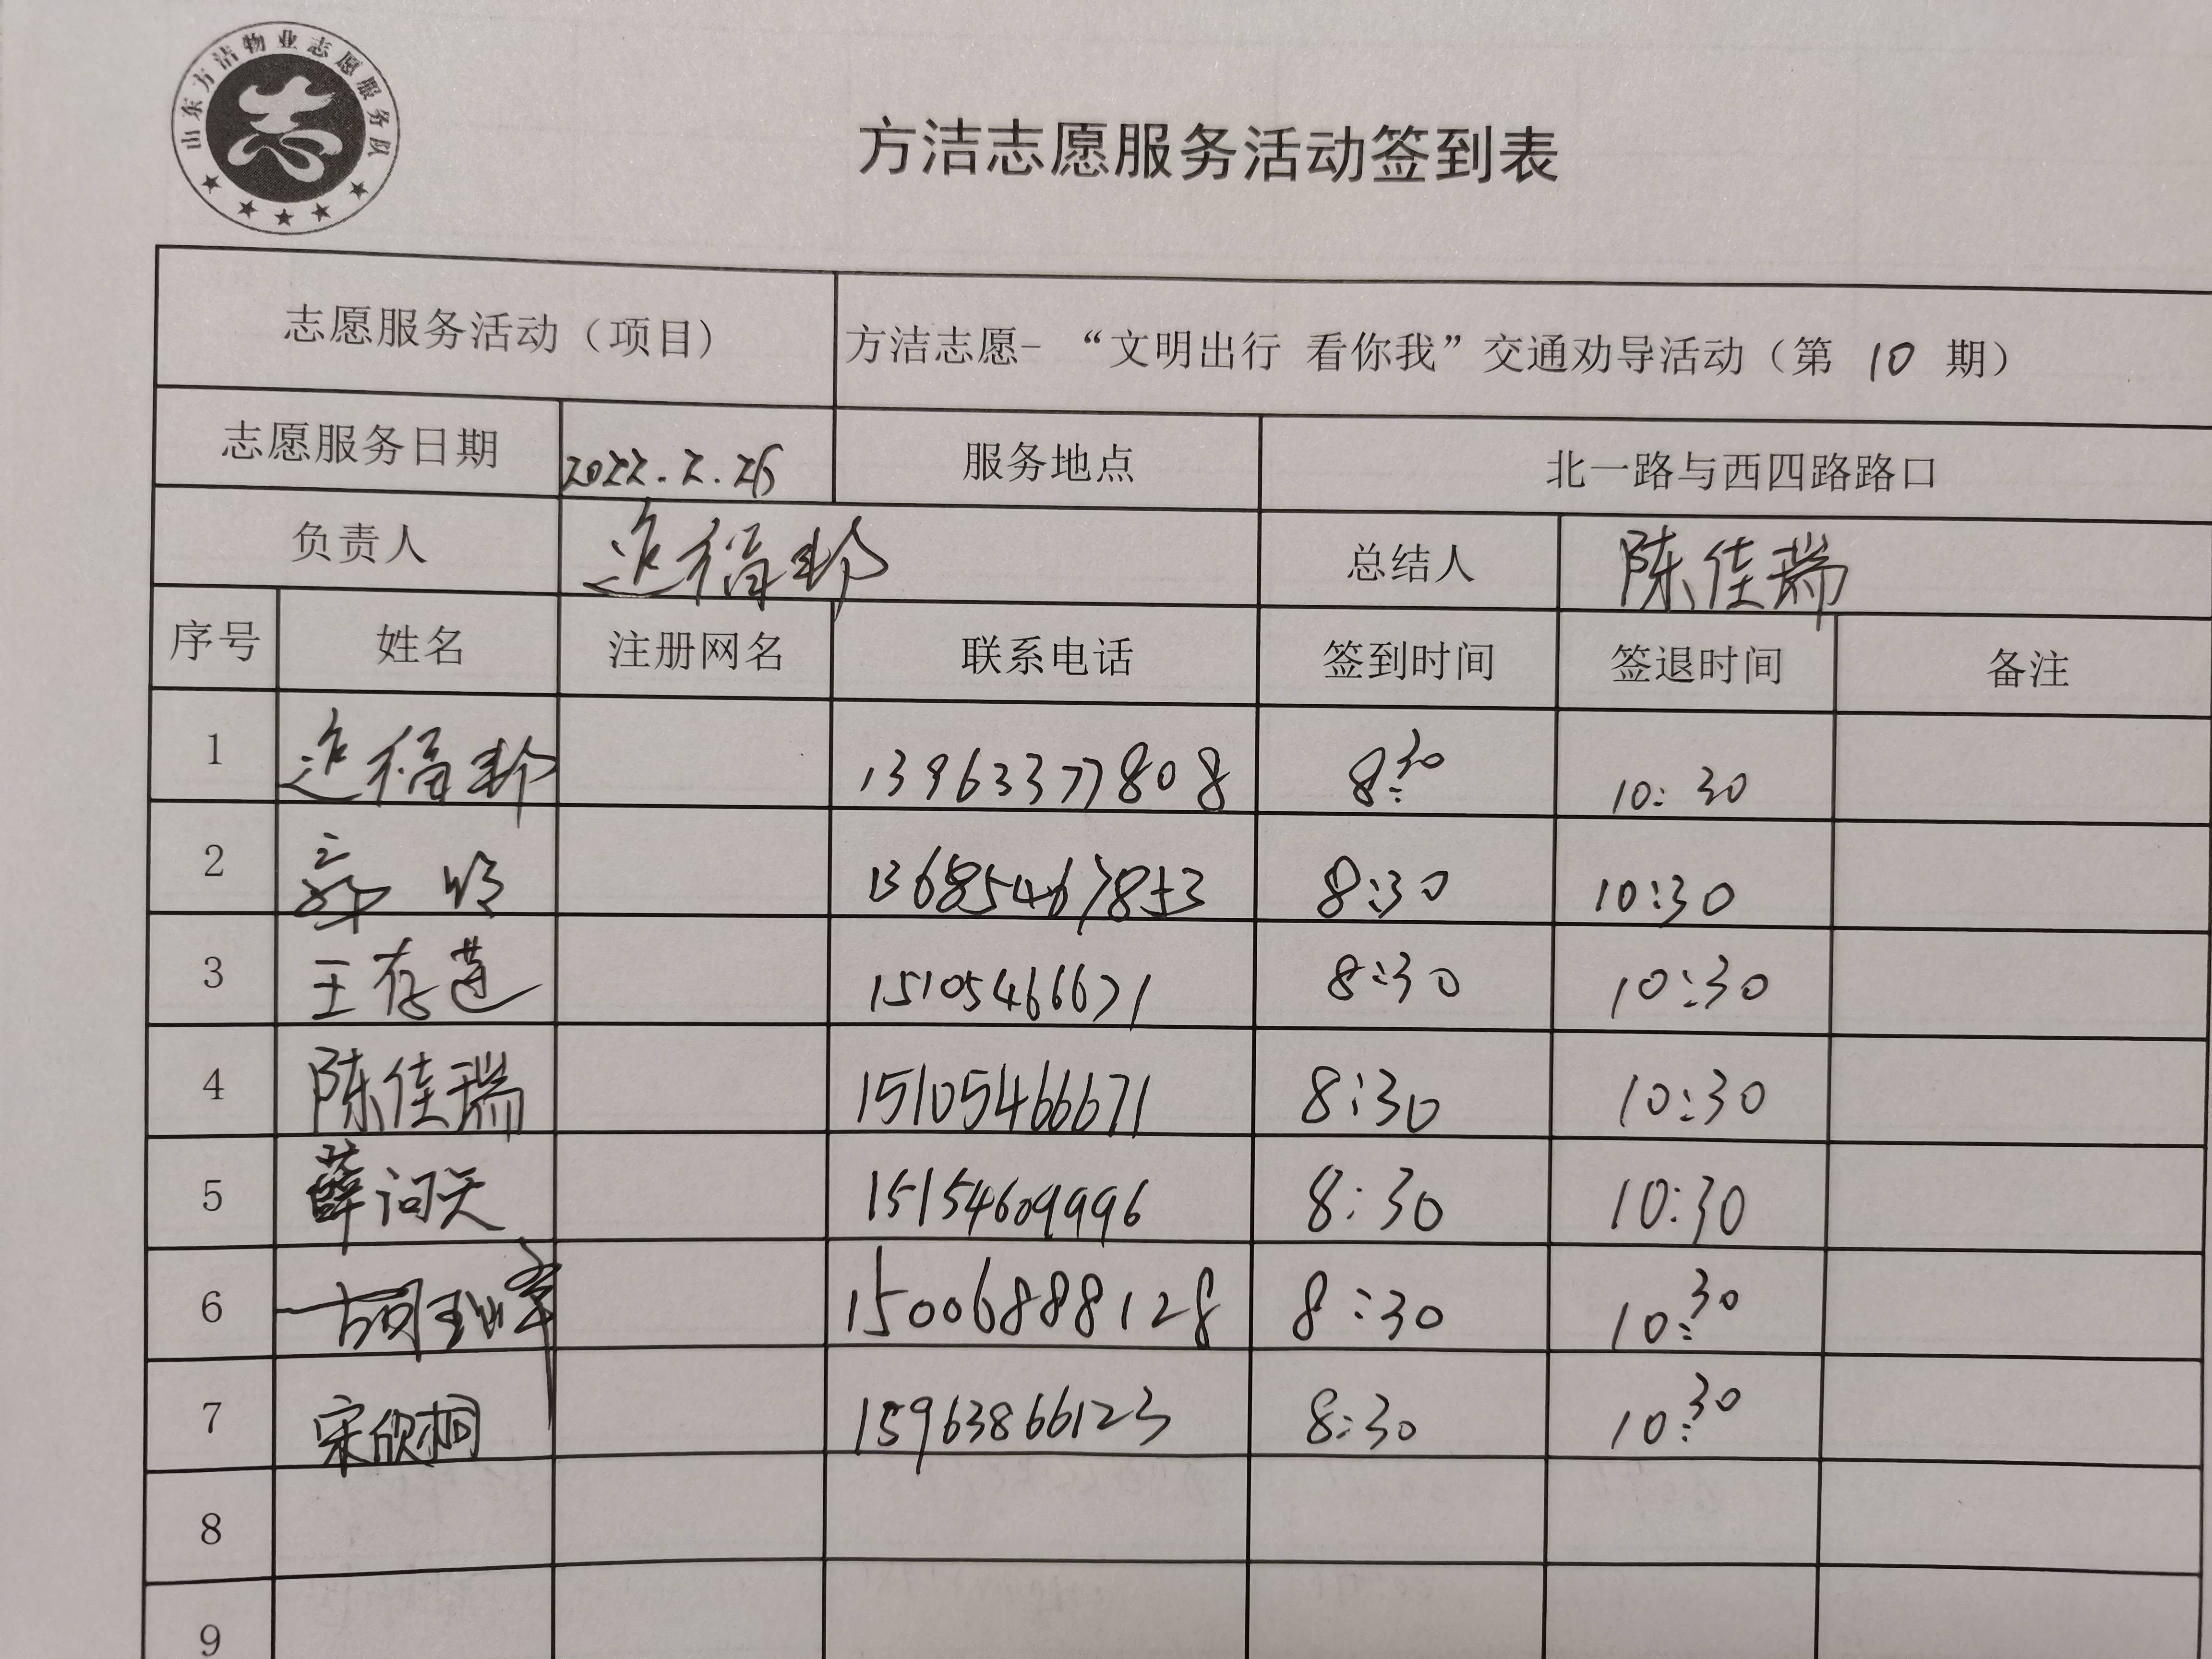 山东方洁物业志愿服务队
志
方洁志愿服务活动签到表
志愿服务活动（项目） 方洁志愿-“文明出行 看你我”交通劝导活动（第 10 期）
志愿服务日期 2022.2.26 服务地点 北一路与西四路路口
负责人 总结人 陈佳瑞
序号 姓名 注册网名 联系电话 签到时间 签退时间 备注
1 13963377808 8:30 10:30
2 13685467853 8:30 10:30
3 王存莲 15105466671 8:30 10:30
4 陈佳瑞 15105466671 8:30 10:30
5 薛问天 15154609996 8:30 10:30
6 15006888128 8:30 10:30
7 宋欣桐 15963866123 8:30 10:30
8
9